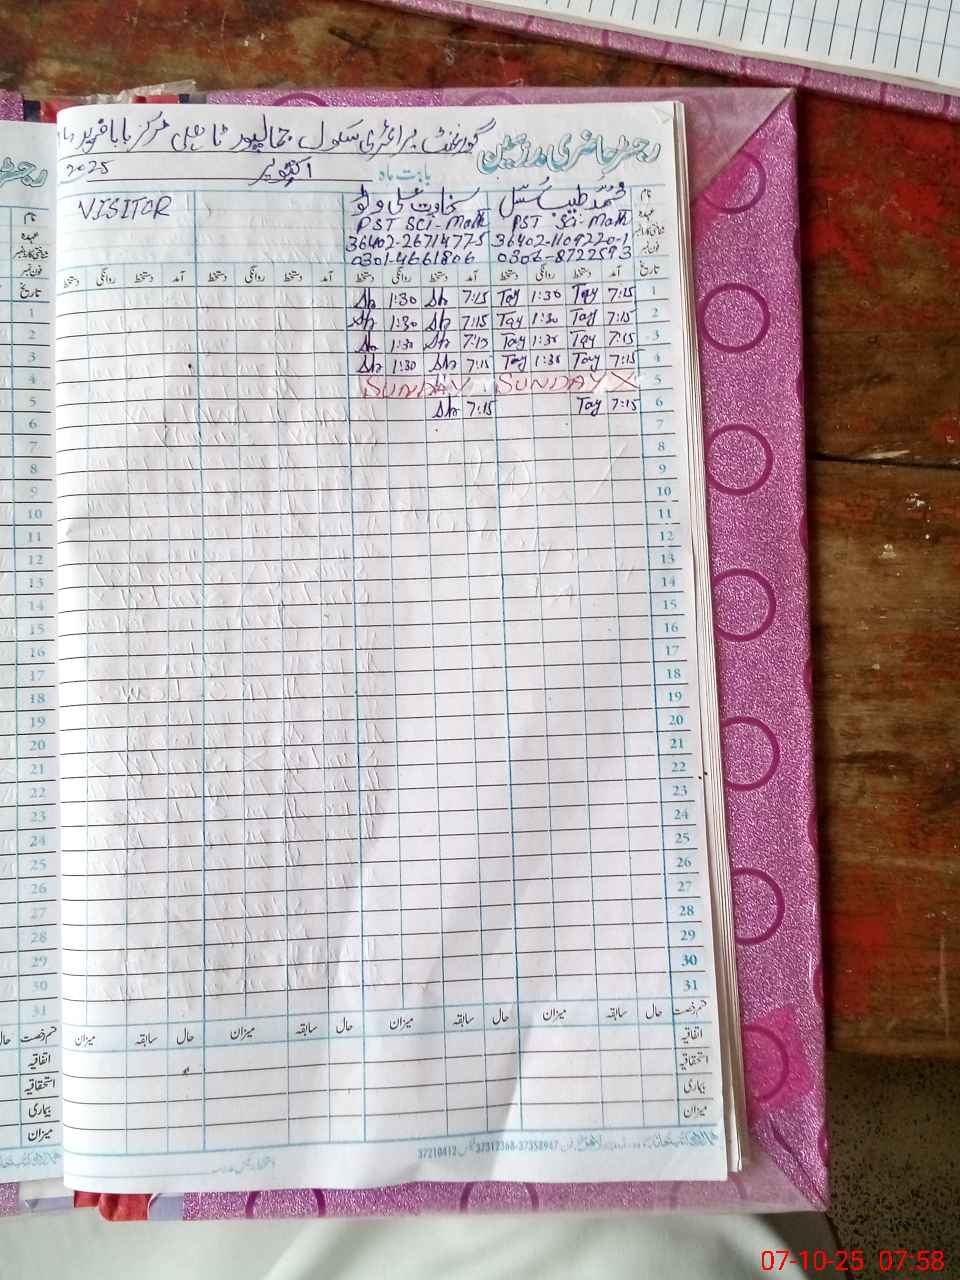 رجسٹر حاضری مدرسین گورنمنٹ پرائمری سکول جمالپور مرکز بابا فرید
بابت ماہ اکتوبر 2025
نام محمد طیب سخاوت علی وٹو VISITOR
عہدہ PST Sci-Math PST Sci-Math
شناختی کارڈ نمبر 36402-1109220-1 36402-2671477-5
فون نمبر 0306-8722593 0301-4661806
تاریخ آمد دستخط روانگی دستخط آمد دستخط روانگی دستخط آمد دستخط روانگی دستخط آمد دستخط روانگی دستخط
1 7:15 Tay 1:30 Tay 7:15 Sh 1:30 Sh
2 7:15 Tay 1:30 Tay 7:15 Sh 1:30 Sh
3 7:15 Tay 1:30 Tay 7:15 Sh 1:30 Sh
4 7:15 Tay 1:30 Tay 7:15 Sh 1:30 Sh
5 SUNDAY X SUNDAY
6 7:15 Tay 7:15 Sh
7
8
9
10
11
12
13
14
15
16
17
18
19
20
21
22
23
24
25
26
27
28
29
30
31
قسم رخصت حال سابقہ میزان حال سابقہ میزان حال سابقہ میزان حال سابقہ میزان
اتفاقیہ
استحقاقیہ
بیماری
میزان
37312368-37358947 37210412
07-10-25 07:58